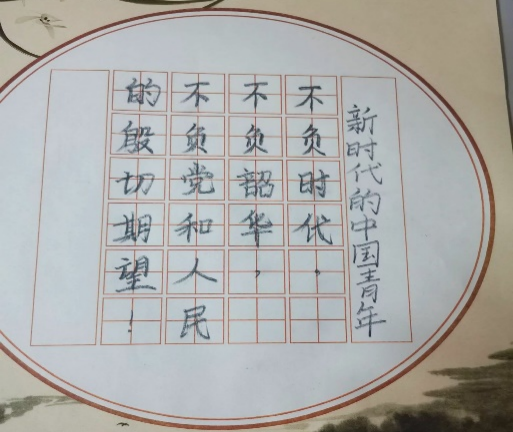 新时代的中国青年
不负时代,
不负韶华,
不负党和人民
的殷切期望!